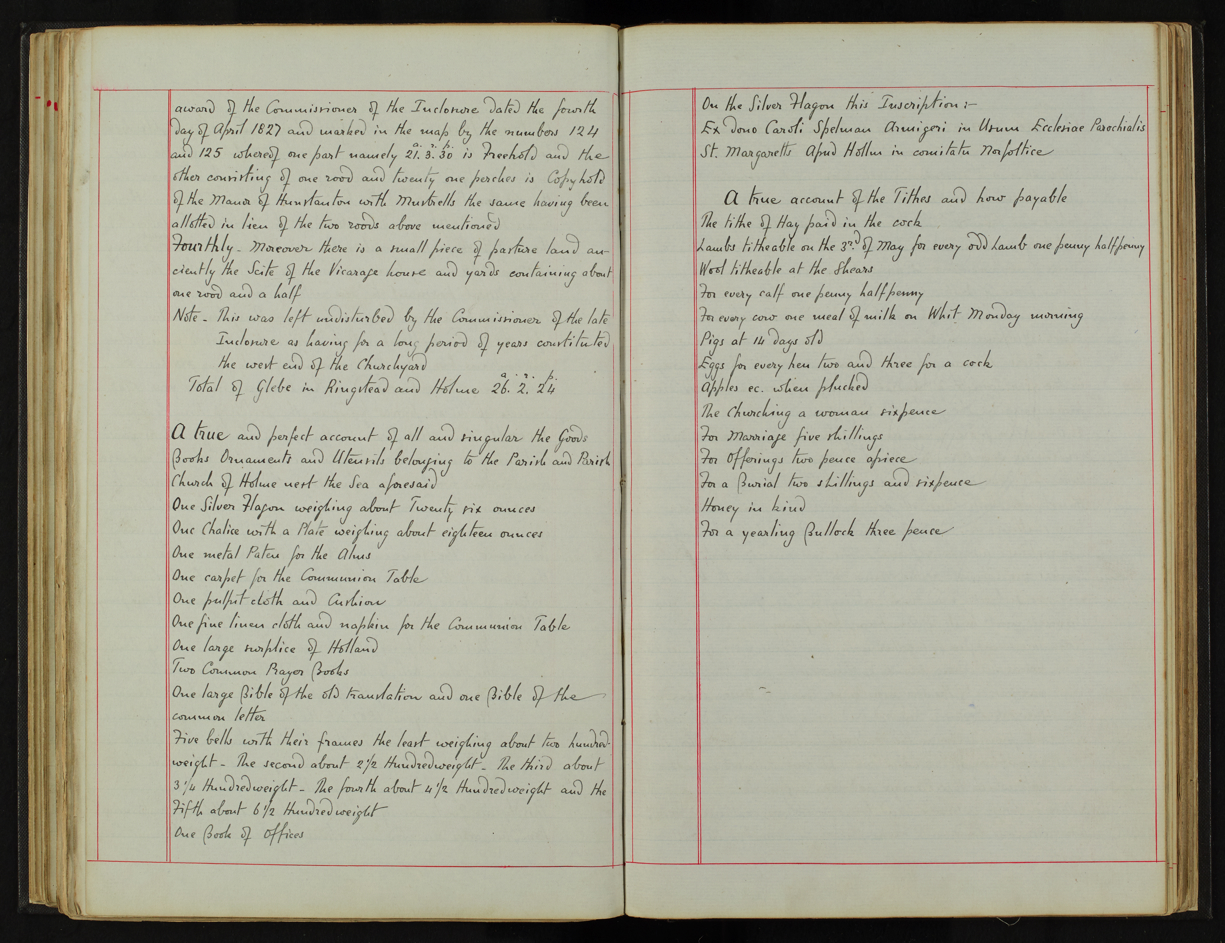 award of the Commissioner of the Inclosure dated the fourth
day of April 1827 and marked in the map by the numbers 124
and 125 whereof one part namely 21. 3. 30 is Freehold and the
other consisting of one rood and twenty one perches is Copyhold
of the Manor of Hunstanton with Mustrells the same having been
allotted in lieu of the two roods above mentioned
Fourthly - Moreover there is a small piece of pasture land an-
ciently the Scite of the Vicarage house and yards containing about
one rood and a half
Note - This was left undisturbed by the Commissioner of the late
Inclosure as having for a long period of years constituted
the west end of the Churchyard
a. r. p.
Total of Glebe in Ringstead and Holme 26. 2. 24
A true and perfect account of all and singular the Goods
Books Ornaments and Utensils belonging to the Parish and Parish
Church of Holme next the Sea aforesaid
One Silver Flagon weighing about Twenty six ounces
One Chalice with a Plate weighing about eighteen ounces
One metal Paten for the Alms
One carpet for the Communion Table
One pulpit cloth and Cushion
One fine linen cloth and napkin for the Communion Table
One large surplice of Holland
Two Common Prayer Books
One large Bible of the old translation and one Bible of the
common letter
Five bells with their frames the least weighing about two hundred-
weight - The second about 2½ Hundredweight - The third about
3¼ Hundredweight - The fourth about 4½ Hundredweight and the
Fifth about 6½ Hundredweight
One Book of Offices
On the Silver Flagon this Inscription :-
Ex dono Caroli Spelman Armigeri in Usum Ecclesiae Parochialis
St. Margaretts Apud Hollm in comitatu Norfoltice
A true account of the Tithes and how payable
The tithe of Hay paid in the cock
Lambs titheable on the 3rd of May for every odd Lamb one penny halfpenny
Wool titheable at the Shears
For every calf one penny halfpenny
For every cow one meal of milk on Whit Monday morning
Pigs at 14 days old
Eggs for every hen two and three for a cock
Apples ec. when plucked
The Churching a woman sixpence
For Marriage five shillings
For Offerings two pence apiece
For a Burial two shillings and sixpence
Honey in kind
For a yearling Bullock three pence